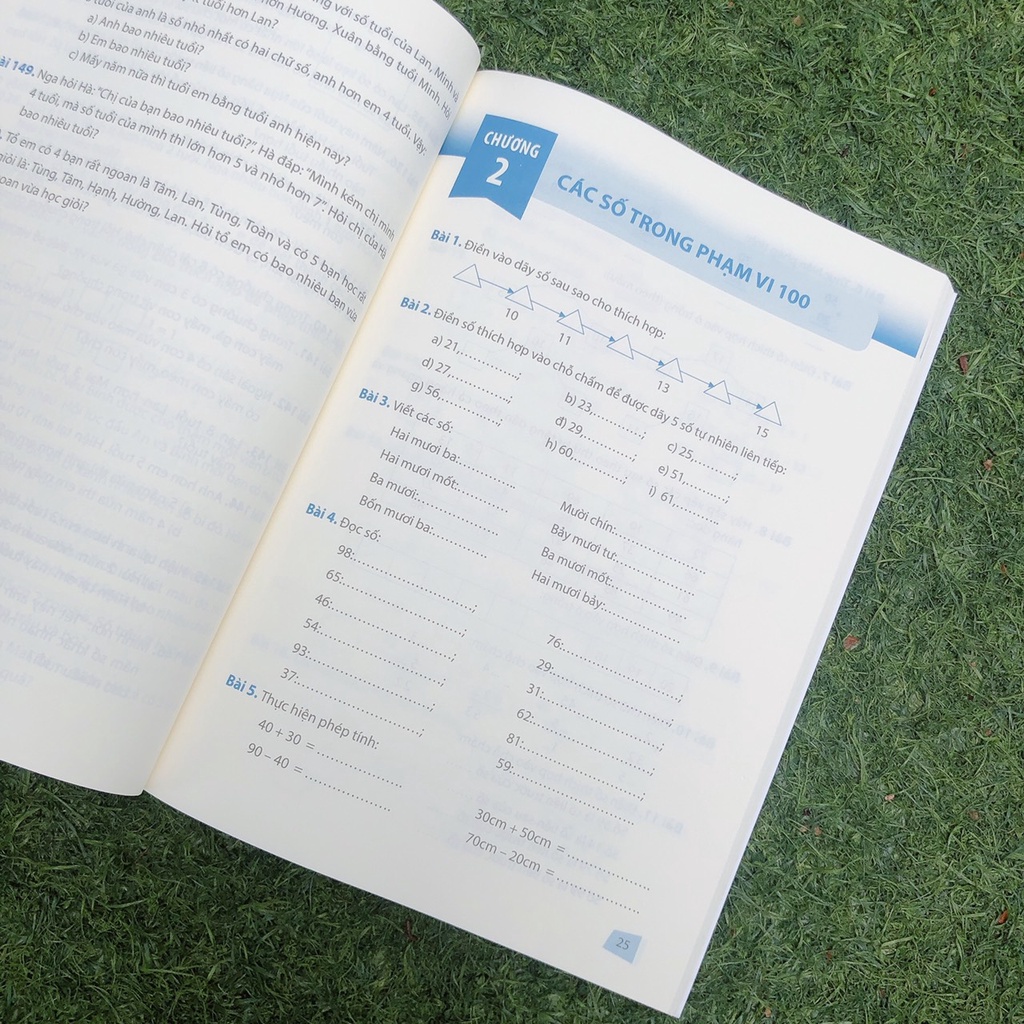 ng với số tuổi của Lan, Minh
hơn Hương, Xuân bằng tuổi Minh. Hỏi
tuổi hơn Lan?
tuổi của anh là số nhỏ nhất có hai chữ số, anh hơn em 4 tuổi. Vậy:
a) Anh bao nhiêu tuổi?
b) Em bao nhiêu tuổi?
c) Mấy năm nữa thì tuổi em bằng tuổi anh hiện nay?
ài 149. Nga hỏi Hà: "Chị của bạn bao nhiêu tuổi?". Hà đáp: "Mình kém chị mình
4 tuổi, mà số tuổi của mình thì lớn hơn 5 và nhỏ hơn 7". Hỏi chị của Hà
bao nhiêu tuổi?
. Tổ em có 4 bạn rất ngoan là Tâm, Lan, Tùng, Toàn và có 5 bạn học rất
giỏi là: Tùng, Tâm, Hạnh, Hường, Lan. Hỏi tổ em có bao nhiêu bạn vừa
oan vừa học giỏi?
CHƯƠNG
2
CÁC SỐ TRONG PHẠM VI 100
Bài 1. Điền vào dãy số sau sao cho thích hợp:
10 11 13 15
Bài 2. Điền số thích hợp vào chỗ chấm để được dãy 5 số tự nhiên liên tiếp:
a) 21,............; b) 23,............; c) 25,............;
d) 27,............; đ) 29,............; e) 51,............;
g) 56,............; h) 60,............; i) 61,............
Bài 3. Viết các số:
Hai mươi ba:............ Mười chín:............
Hai mươi mốt:............ Bảy mươi tư:............
Ba mươi:............ Ba mươi mốt:............
Bốn mươi ba:............ Hai mươi bảy:............
Bài 4. Đọc số:
98:............; 76:............;
65:............; 29:............;
46:............; 31:............;
54:............; 62:............;
93:............; 81:............;
37:............; 59:............
Bài 5. Thực hiện phép tính:
40 + 30 =............ 30cm + 50cm =............
90 – 40 =............ 70cm – 20cm =............
25